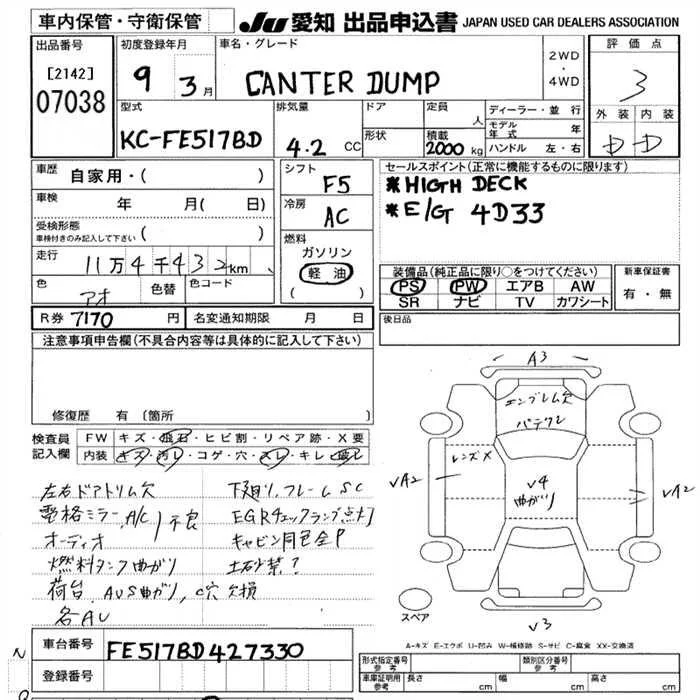 車内保管・守衛保管
JU 愛知 出品申込書 JAPAN USED CAR DEALERS ASSOCIATION
出品番号
[2142]
07038
初度登録年月
9 3月
車名・グレード
CANTER DUMP
2WD
・
4WD
評価点
3
外装 内装
D D
型式
KC-FE517BD
排気量
4.2 CC
ドア
形状
定員
人
積載
2000 kg
ディーラー・並行
モデル年式 年
ハンドル 左・右
車歴
自家用・( )
車検 年 月( 日)
受検形態
車検付きのみ記入して下さい ( )
走行
11万4千432km
色
アオ
色替
色コード
シフト
F5
冷房
AC
燃料
ガソリン
軽油
( )
セールスポイント(正常に機能するものに限ります)
*HIGTH DECK
*E/G 4D33
装備品(純正品に限り○をつけてください)
PS PW エアB AW
SR ナビ TV カワシート
新車保証書
有・無
後日品
R券 7170 円
名変通知期限 月 日
注意事項申告欄(不具合内容等は具体的に記入して下さい)
修復歴 有 〔箇所 〕
検査員
記入欄
FW キズ・飛石・ヒビ割・リペア跡・X要
内装 キズ・汚レ・コゲ・穴・スレ・キレ・破レ
左右ドアトリム欠
電格ミラー、A/C 不良
オーディオ
燃料タンク曲がり
荷台、AUS曲がり、C穴欠損
各AU
下廻り、フレームSC
EGRチェックランプ点灯
キャビン同色全P
土砂禁?
A3
エンブレム欠
バテクレ
レンズX
V4
曲がり
VA2
VA2
V3
スペア
A-キズ E-エクボ U-凹み W-補修跡 S-サビ C-腐食 XX-交換済
N
車台番号
FE517BD427330
登録番号
形式指定番号
参考
類別区分番号
参考
車庫証明用
参考
長さ cm
幅 cm
高さ cm